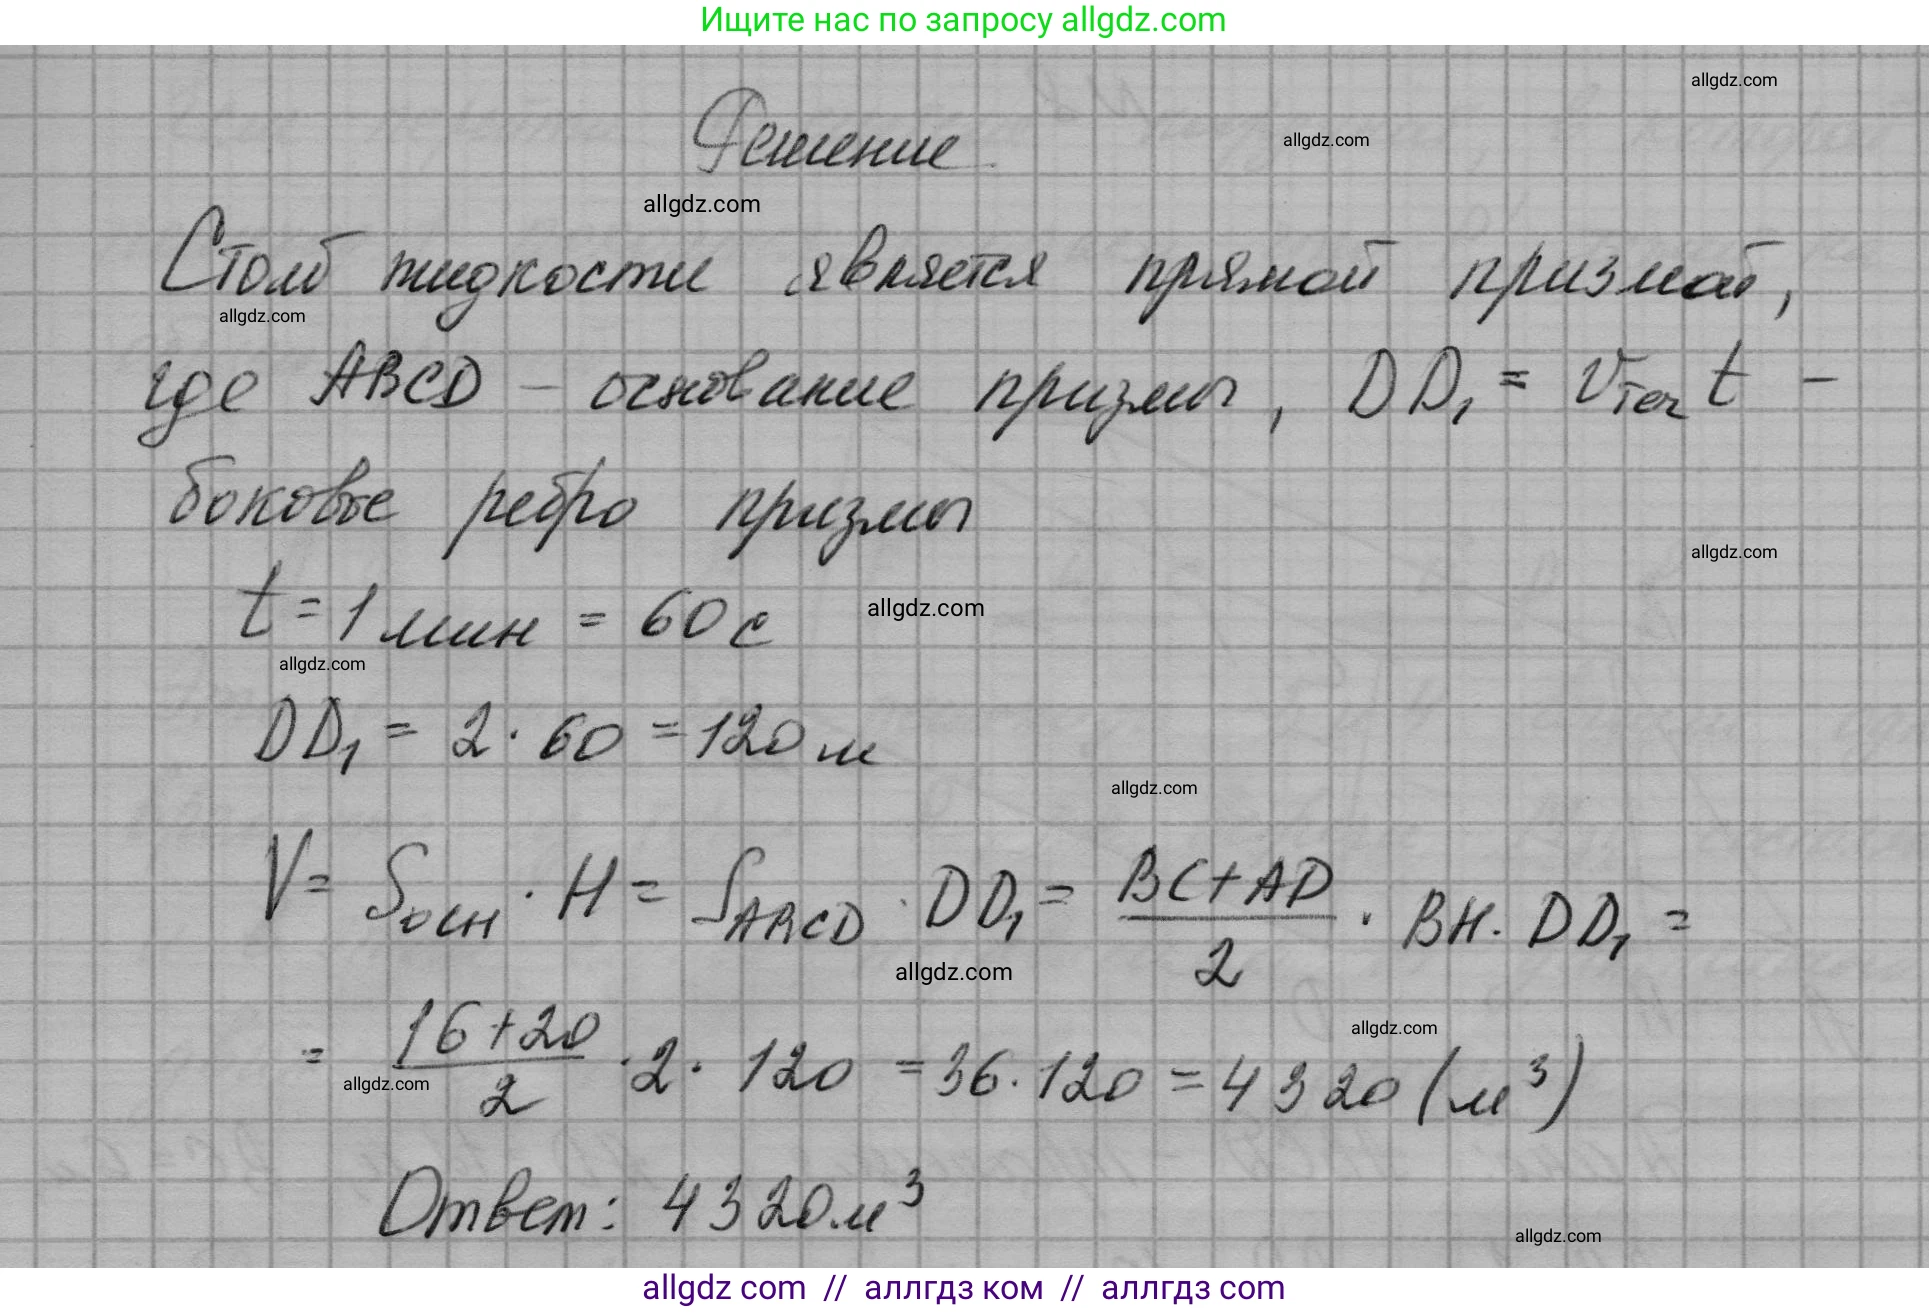 Ищите нас по запросу allgdz.com
allgdz.com
Решение
allgdz.com
allgdz.com
Столб жидкости является прямой призмой,
allgdz.com
где ABCD – основание призмы, DD₁ = v_теч t –
боковое ребро призмы
allgdz.com
t = 1 мин = 60 с
allgdz.com
allgdz.com
DD₁ = 2 · 60 = 120 м
allgdz.com
V = S_осн · H = S_ABCD · DD₁ = (BC + AD)/2 · BH · DD₁ =
allgdz.com
= (16 + 20)/2 · 2 · 120 = 36 · 120 = 4320 (м³)
allgdz.com
allgdz.com
Ответ: 4320 м³
allgdz.com
allgdz com // аллгдз ком // аллгдз com